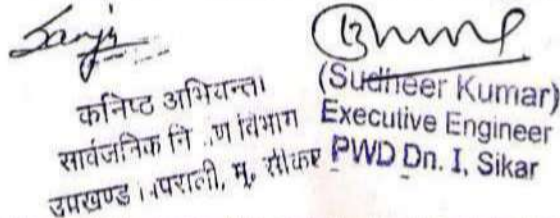 कनिष्ठ अभियन्ता
सार्वजनिक नि..ण विभाग
उपखण्ड ..पराली, मु. सीकर
(Sudheer Kumar)
Executive Engineer
PWD Dn. I, Sikar